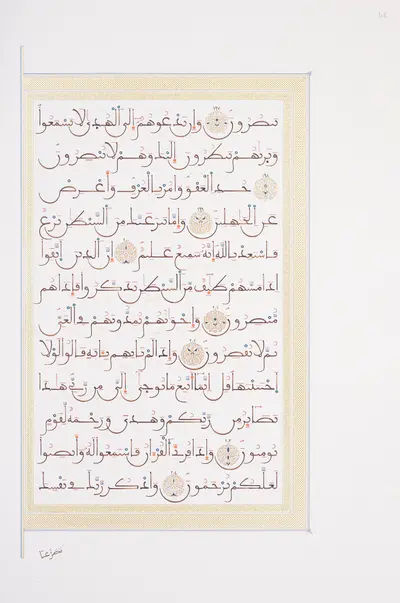 ينصرون وإن تدعوهم إلى الهدى لا يسمعوا
وتريهم ينظرون إليك وهم لا يبصرون
خذ العفو وامر بالعرف وأعرض
عن الجهلين وإما ينزغنك من الشيطن نزغ
فاستعذ بالله إنه سميع عليم إن الذين اتقوا
إذا مسهم طيف من الشيطن تذكروا فإذا هم
مبصرون وإخونهم يمدونهم في الغي
ثم لا يقصرون وإذا لم تأتهم بآية قالوا لولا
اجتبيتها قل إنما أتبع ما يوحى إلي من ربي هذا
بصائر من ربكم وهدى ورحمة لقوم
يؤمنون وإذا قرئ القرآن فاستمعوا له وأنصتوا
لعلكم ترحمون واذكر ربك في نفسك
تضرعا